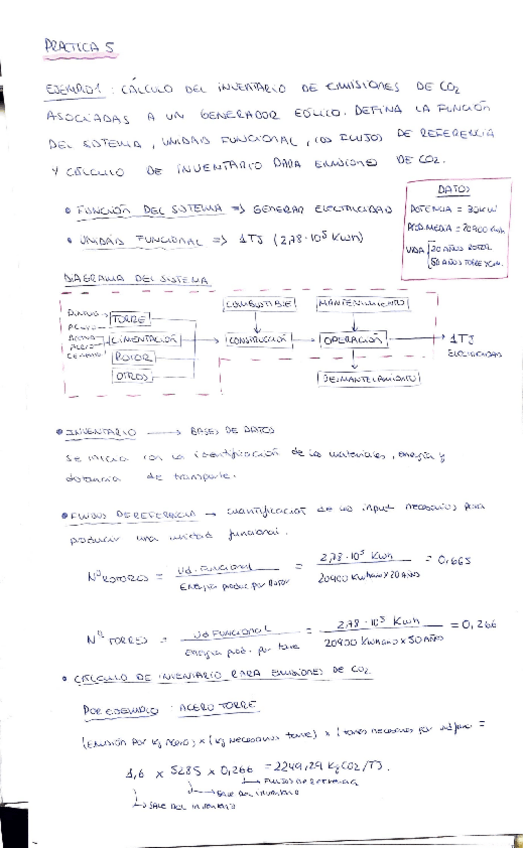 PRACTICA 5
EJEMPLO 1: CÁLCULO DEL INVENTARIO DE EMISIONES DE CO2
ASOCIADAS A UN GENERADOR EÓLICO. DEFINA LA FUNCIÓN
DEL SISTEMA, UNIDAD FUNCIONAL, LOS FLUJOS DE REFERENCIA
Y CÁLCULO DE INVENTARIO PARA EMISIONES DE CO2.
• FUNCIÓN DEL SISTEMA => GENERAR ELECTRICIDAD
• UNIDAD FUNCIONAL => 1TJ (2,78·10⁵ KWh)
DATOS
POTENCIA = 30KW
PROD. MEDIA = 20900 KWh
VIDA 20 AÑOS ROTOR
50 AÑOS TORRE Y CIM.
DIAGRAMA DEL SISTEMA
COMBUSTIBLE MANTENIMIENTO
ACERO TORRE
ACERO CIMENTACIÓN CONSTRUCCIÓN OPERACIÓN 1TJ
CEMENTO ROTOR
OTROS DESMANTELAMIENTO
• INVENTARIO → BASES DE DATOS
Se inicia con la identificación de los materiales, energía y
distancia de transporte.
• FLUJOS DE REFERENCIA → cuantificación de los input necesarios para
producir una unidad funcional.
Nº ROTORES = Ud. Funcional / Energía produc. por Rotor = 2,78·10⁵ Kwh / 20900 Kwh/año x 20 AÑOS = 0,665
Nº TORRES = Ud FUNCIONAL / Energía prod. por torre = 2,78·10⁵ Kwh / 20900 KWh/año x 50 AÑOS = 0,266
• CÁLCULO DE INVENTARIO PARA EMISIONES DE CO2
POR EJEMPLO: ACERO TORRE
(Emisión por kg acero) x (kg necesarios torre) x (torres necesarias por ud func =
1,6 x 5285 x 0,266 = 2249,29 KgCO2/TJ.
→ FLUJOS DE REFERENCIA
→ SALE DEL INVENTARIO
→ SALE DEL INVENTARIO